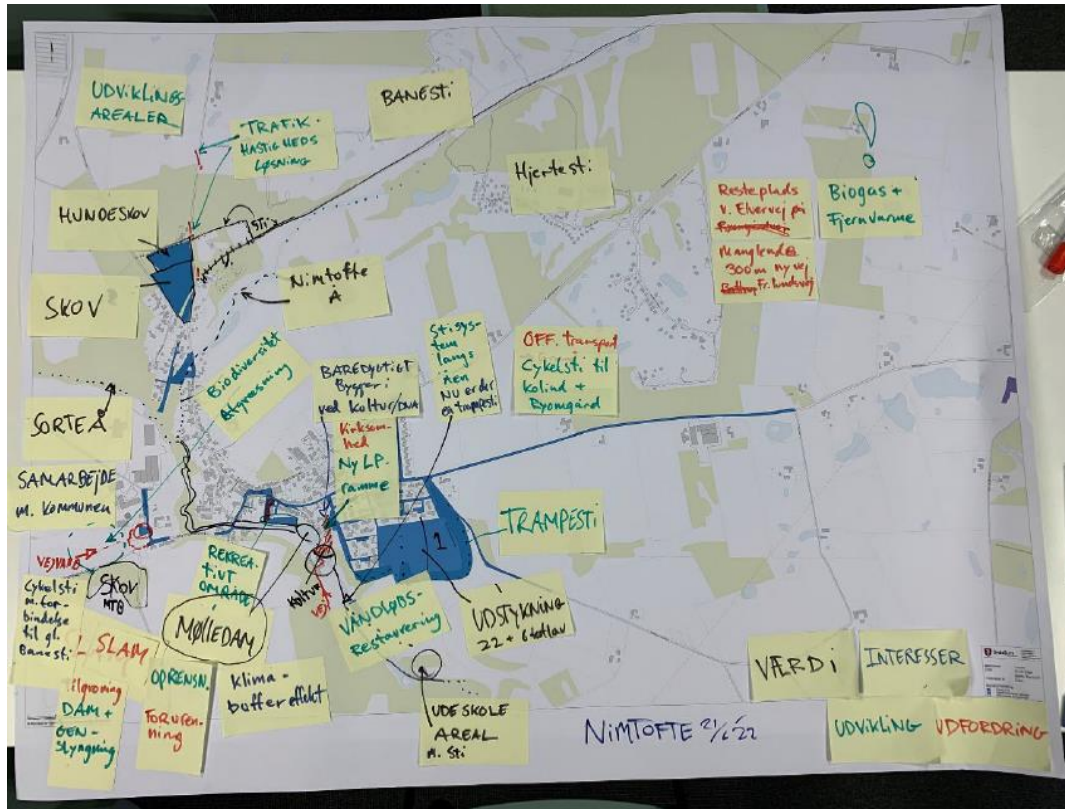 UDVIKLINGS-
AREALER
TRAFIK-
HASTIGHEDS
LØSNING
BANESTI
Hjertesti
Resteplads
v. Elvervej på
Manglende
300m ny vej
Fr. Lundsvej
Biogas +
Fjernvarme
HUNDESKOV
STI
SKOV
Nimtofte
Å
Biodiversitet
Afgræsning
BÆREDYGTIGT
Byggeri
ved Kultur/DNA
Stisys-
tem
langs
åen
NU er der
en trampesti
OFF. transport
Cykelsti til
Kolind +
Ryomgård
Virksom-
hed
Ny LP.
ramme
SORTE Å
SAMARBEJDE
m. Kommunen
VEJVÆRK
TRAMPESTI
1
REKREA-
TIVT
OMRÅDE
Kultur
VEJ
SKOV
MTB
Cykelsti
m. for-
bindelse
til gl.
Banesti
MØLLEDAM
VANDLØBS-
Restaurering
UDSTYKNING
22 + 6 tætlav
SLAM
Tilgroning
DAM +
GEN-
Slyngning
OPRENSN.
FORUREN-
NING
Klima-
buffer effekt
UDESKOLE
AREAL
m. sti
VÆRDI
INTERESSER
UDVIKLING
UDFORDRING
NIMTOFTE 21/6-22